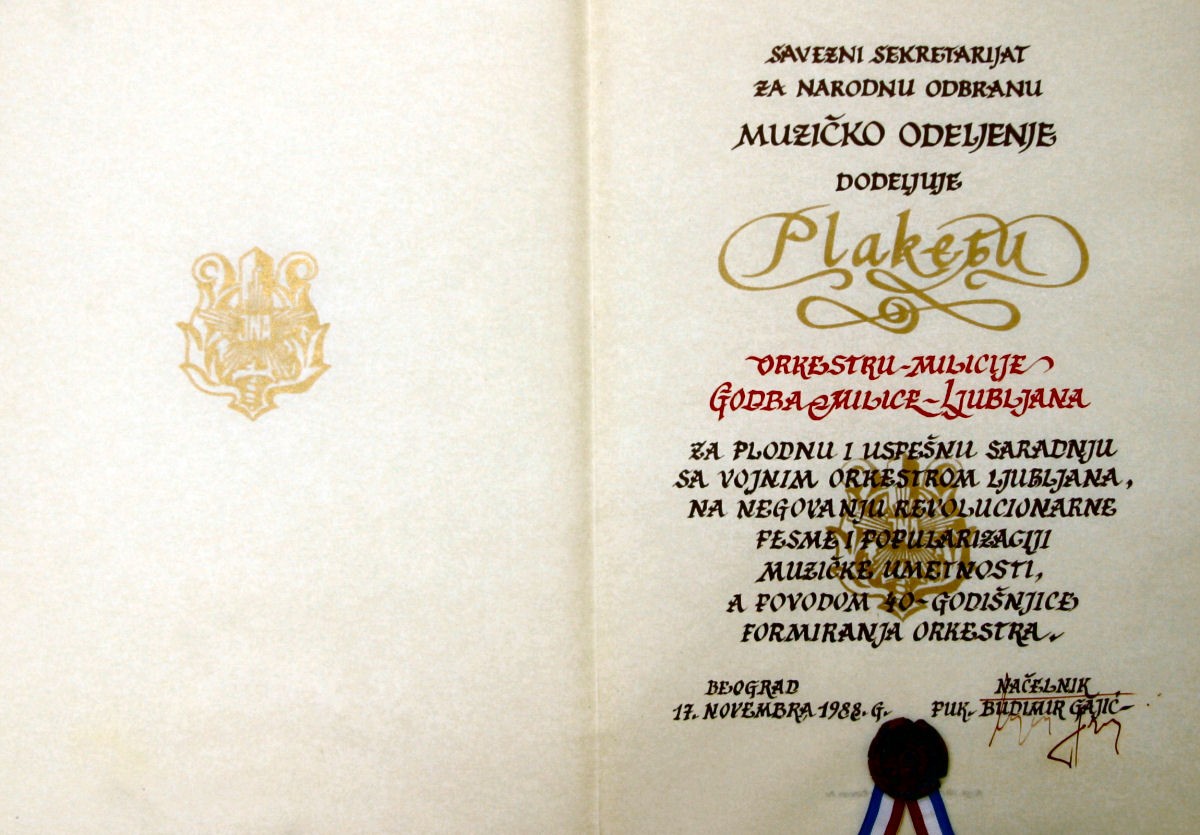 JNA
SAVEZNI SEKRETARIJAT
ZA NARODNU ODBRANU
MUZIČKO ODELJENJE
DODELJUJE
Plaketu
ORKESTRU-MILICIJE
GODBA MILICE-LJUBLJANA
ZA PLODNU I USPEŠNU SARADNJU
SA VOJNIM ORKESTROM LJUBLJANA,
NA NEGOVANJU REVOLUCIONARNE
PESME I POPULARIZACIJI
MUZIČKE UMETNOSTI,
A POVODOM 40-GODIŠNJICE
FORMIRANJA ORKESTRA.
BEOGRAD
17. NOVEMBRA 1988. G.
NAČELNIK
PUK. BUDIMIR GAJIĆ